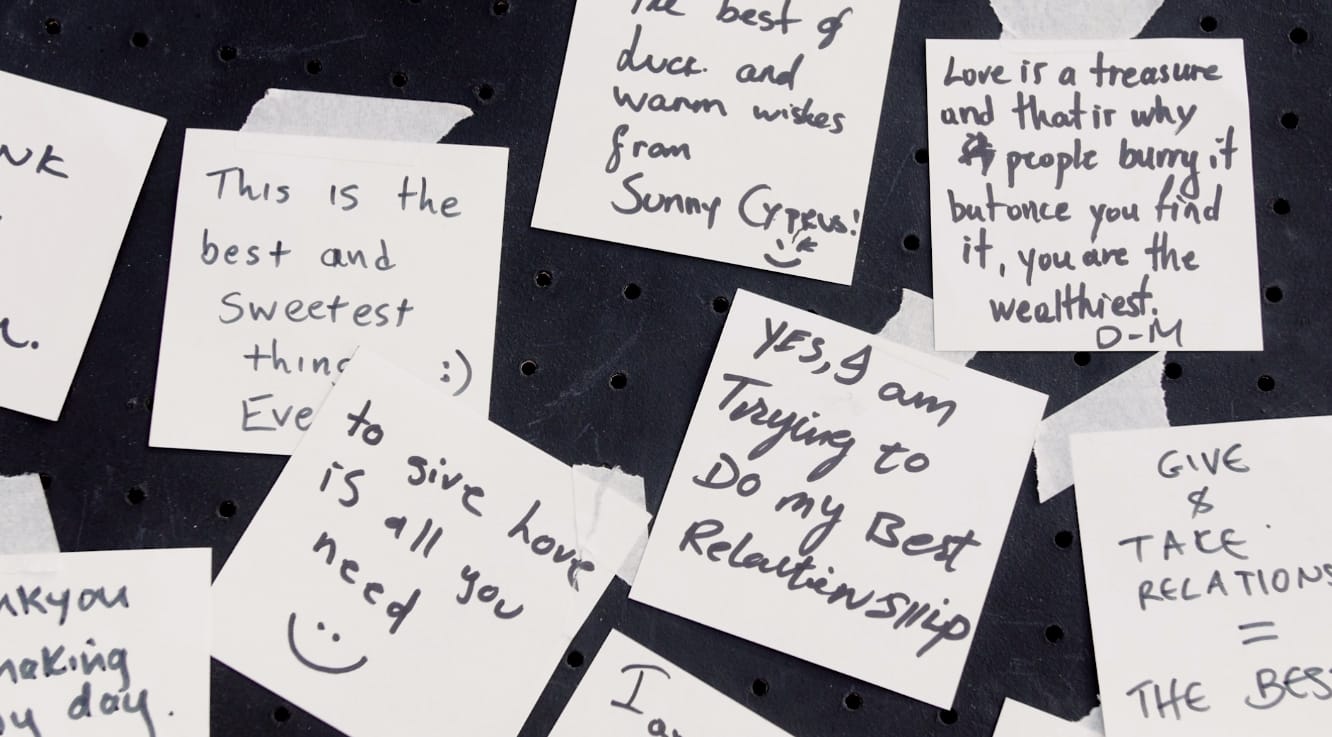 This is the
best and
Sweetest
thing :)
Eve
The best of
luck and
warm wishes
from
Sunny Cyprus!
Love is a treasure
and that is why
people burry it
but once you find
it, you are the
wealthiest.
D-M
to give love
is all you
need
YES, I am
Trying to
Do my Best
Relationship
GIVE
&
TAKE
RELATIONS
=
THE BES
nkyou
making
day.
I